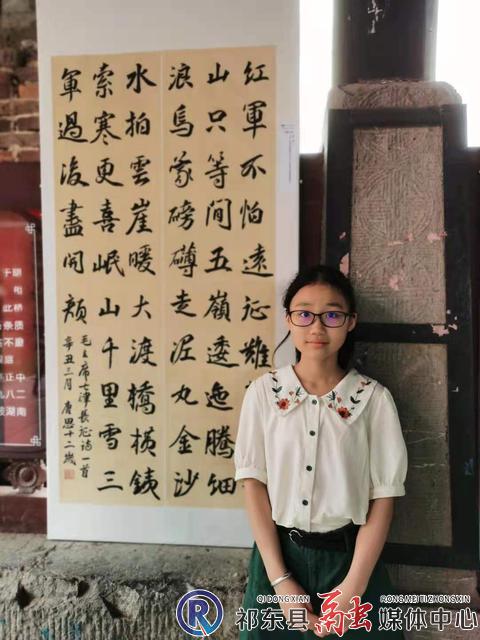 红軍不怕遠征難
山只等间五嶺逶迤騰细
浪烏蒙磅礴走泥丸金沙
水拍雲崖暖大渡橋横鐵
索寒更喜岷山千里雪三
軍過後盡開颜
毛主席七律長征诗一首
辛丑三月 唐思十二歲
此桥
正中
九八二
湖南
R
QIDONGXIAN RONGMEITIZHONGXIN
祁东县融媒体中心